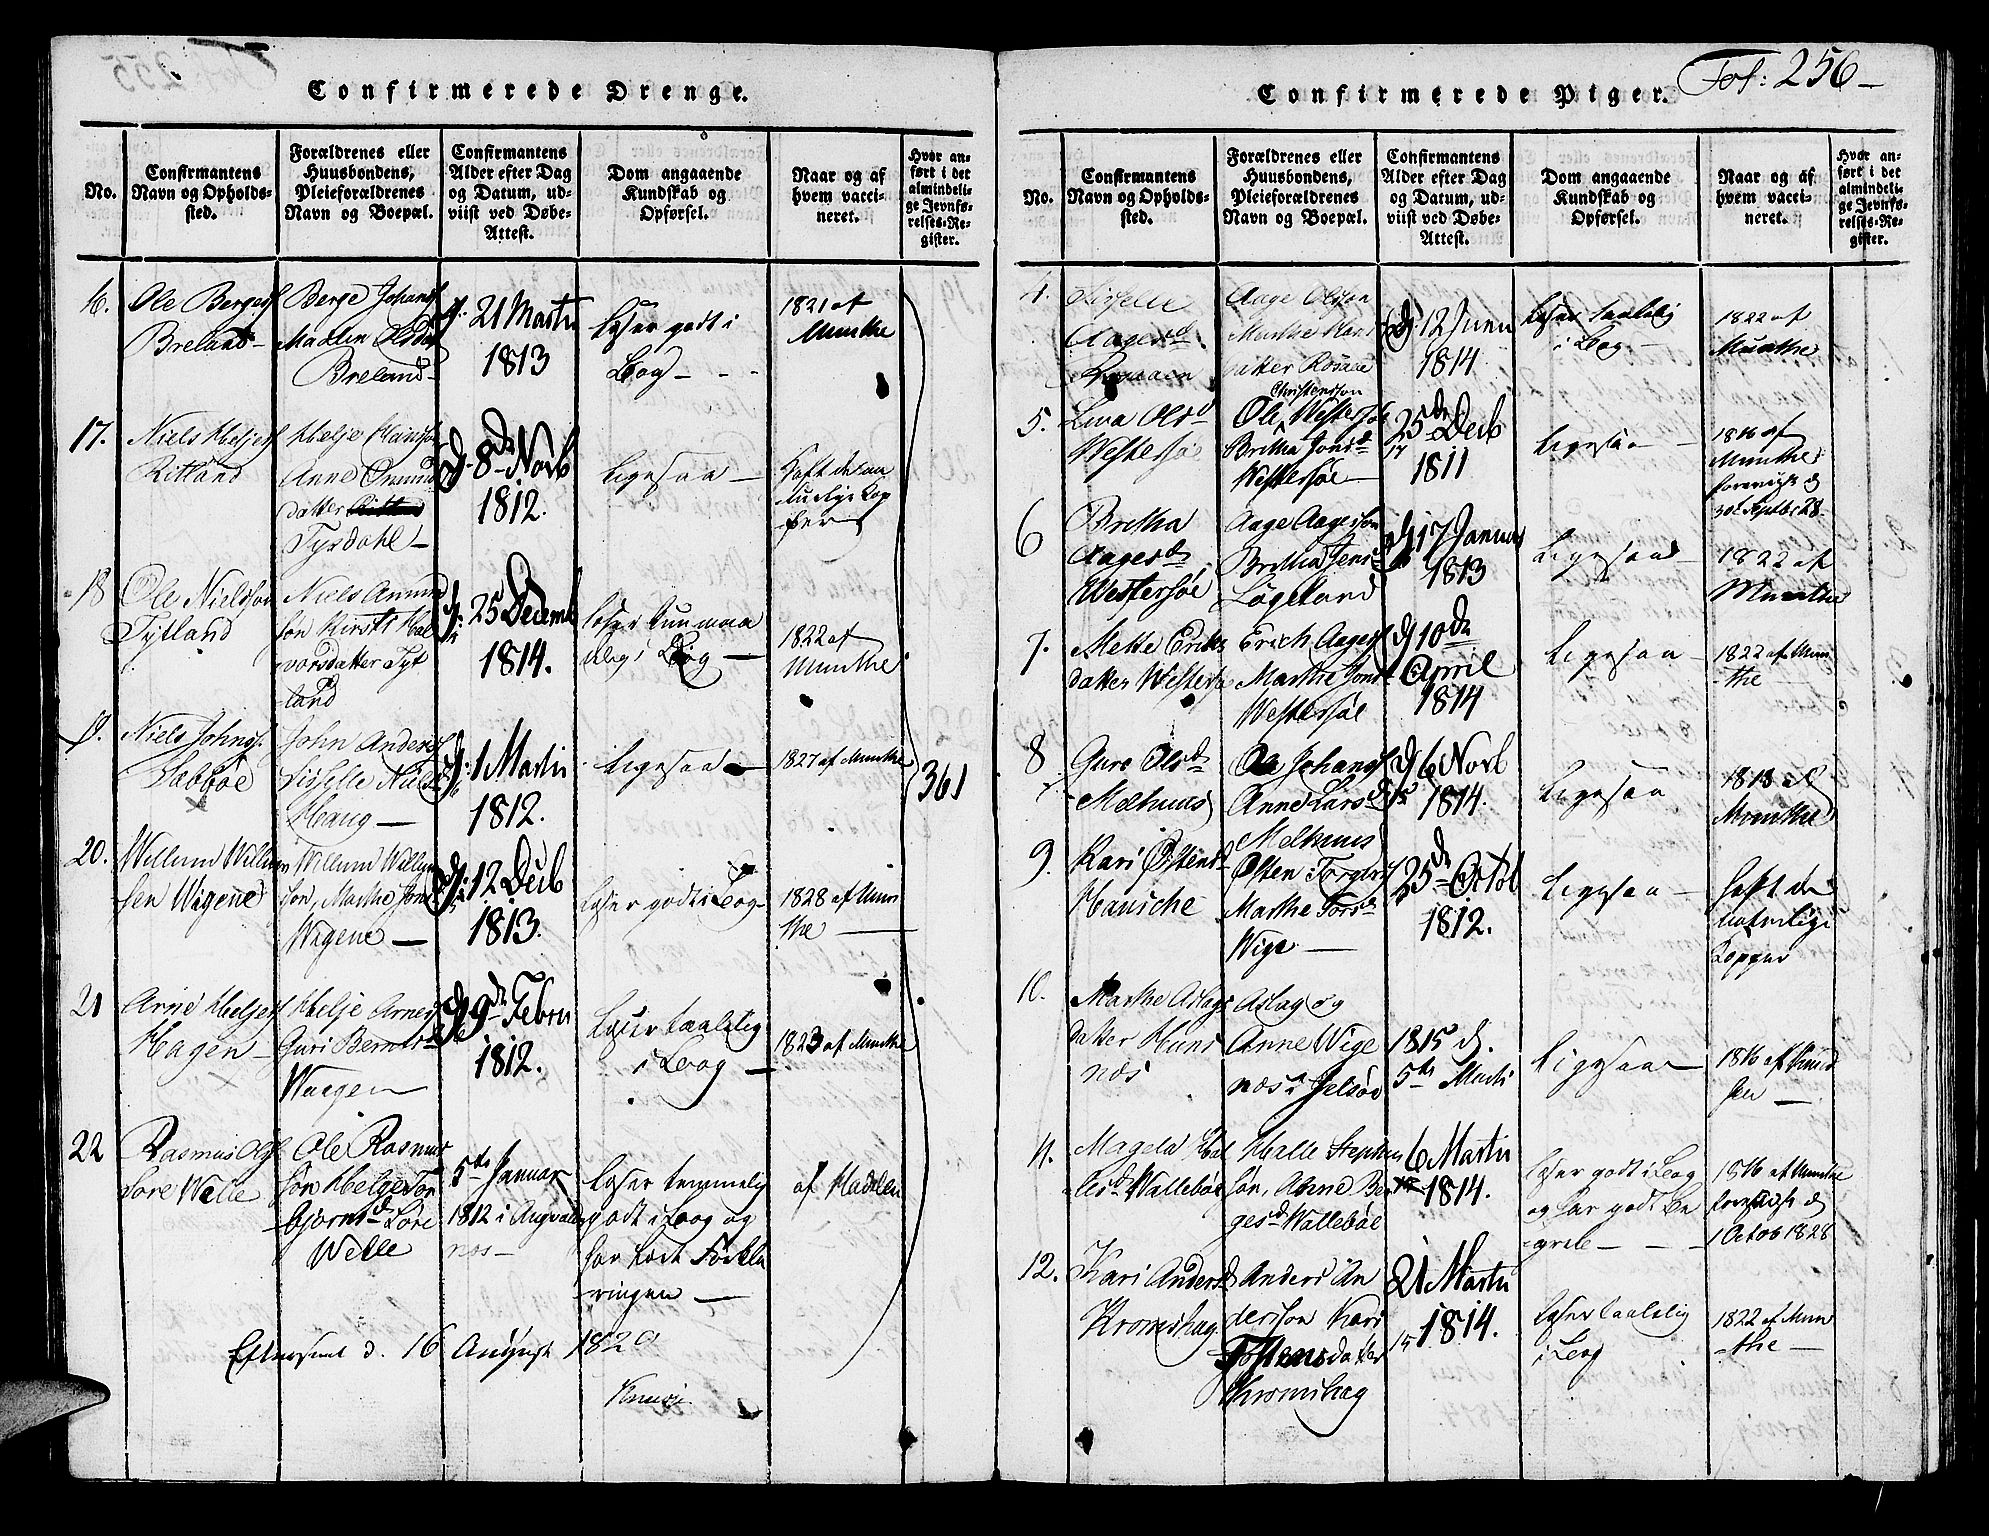 Confirmerede Drenge.
No.
Confirmantens
Navn og Opholds-
sted.
Forældrenes eller
Huusbondens,
Pleieforældrenes
Navn og Boepæl.
Confirmantens
Alder efter Dag
og Datum, ud-
viist ved Døbe-
Attest.
Dom angaaende
Kundskab og
Opførsel.
Naar og af
hvem vacci-
neret.
Hvor an-
ført i det
almindeli-
ge Jevnfø-
relses-Re-
gister.
16.
Ole Bergess
Breland
Berge Johans
Madlen Olsdat
Breland
d. 21 Martii
1813
læser godt i
Bog
1821 af
Munthe
17.
Niels Heljess
Ritland
Helje Hansson
Anne Omund
datter
Tysdahl
d. 8de Novb
1812.
ligesaa
haft de na
turlige Kop
per
18
Ole Nielsson
Tytland
Niels Amund
søn Kirsti Hal
vorsdatter Tyt
land
d. 25 Decemb
1814.
læser kun maa
delig i Bog
1822 af
Munthe
19.
Niels Johns.
Sæbbøe
John Anders
Sisselle Niels
Haug
d. 1 Martii
1812.
Ligesaa
1827 af Munthe
361
20.
Willum Willum
sen Wigene
Willum Willum
søn, Marthe Jons
Wagene
d. 12 Decb
1813.
læser godt i Bog
1828 af Mun
the
21
Arne Heljess
Hagen
Helje Arness
Guri Berntsd
Waagen
d. 9de Febru
1812.
Læser taalelig
i Bog
1823 af Munthe
22
Rasmus Ols
Søre Welle
Ole Rasmus
søn Helge Tor
bjørnsd Søre
Welle
5te Januar
1812 i Augvalds
næs
læser temmelig
godt i Bog og
har lært Forkla
ringen
af Hadelen
Efterseet d. 16 August 1829
Confirmerede Piger.
Fol: 256
No.
Confirmantens
Navn og Opholds-
sted.
Forældrenes eller
Huusbondens,
Pleieforældrenes
Navn og Boepæl.
Confirmantens
Alder efter Dag
og Datum, ud-
viist ved Døbe-
Attest.
Dom angaaende
Kundskab og
Opførsel.
Naar og af
hvem vacci-
neret.
Hvor an-
ført i det
almindeli-
ge Jevnfø-
relses-Re-
gister.
4.
Sisselle
Aagesd
Aage Olson
Marthe Hans
datter
d. 12 Juni
1814
læser taalelig
i Bog
1822 af
Munthe
5.
Lina Olsd
Westersøe
Christensson
Ole Westersøe
Britha Jonsd
Westersøe
25de Decb
1811
Ligesaa
1816 af
Munthe
30t Septbr 28
6
Britha
Aagesd
Westersøe
Aage Aagesson
Britha Jensd
Lögeland
d. 17 Januar
1813
Ligesaa
1822 af
Munthe
7.
Mette Eriks
datter Westersø
Erich Aagess
Marthe Jons
Westersöe
d 10de
April
1814
Ligesaa
1822 af Mun
the
8
Guro Olsd
Melhuus
Ole Johans
Anne Larsd
Melhuus
d 6 Novb
1814.
Ligesaa
1818 af
Munthe
9.
Kari Østensd
Hausche
Østen Torgers
Marthe Torsd
Wige
25de Octob
1812.
Ligesaa
haft de
naturlige
Kopper
10.
Marthe Aslags
datter Huns
næs
Aslag og
Anne Wige
næs i Jelsøe
1815 d.
5te Marti
Ligesaa
1816 af Knud
sen
11.
Magela Hal
lesd Wallebøe
Halle Stephen
søn, Anne Ber
gesd Wallebøe
6 Martii
1814.
læser godt i Bog
og har godt Be
greb
1816 af Munthe
1 Octob 1828
12.
Kari Andersd
Kromshag
Anders An
dersson Kari
Tostensdatter
Kromshag
21 Martii
1814.
15
læser taalelig
i Bog
1822 af Mun
the